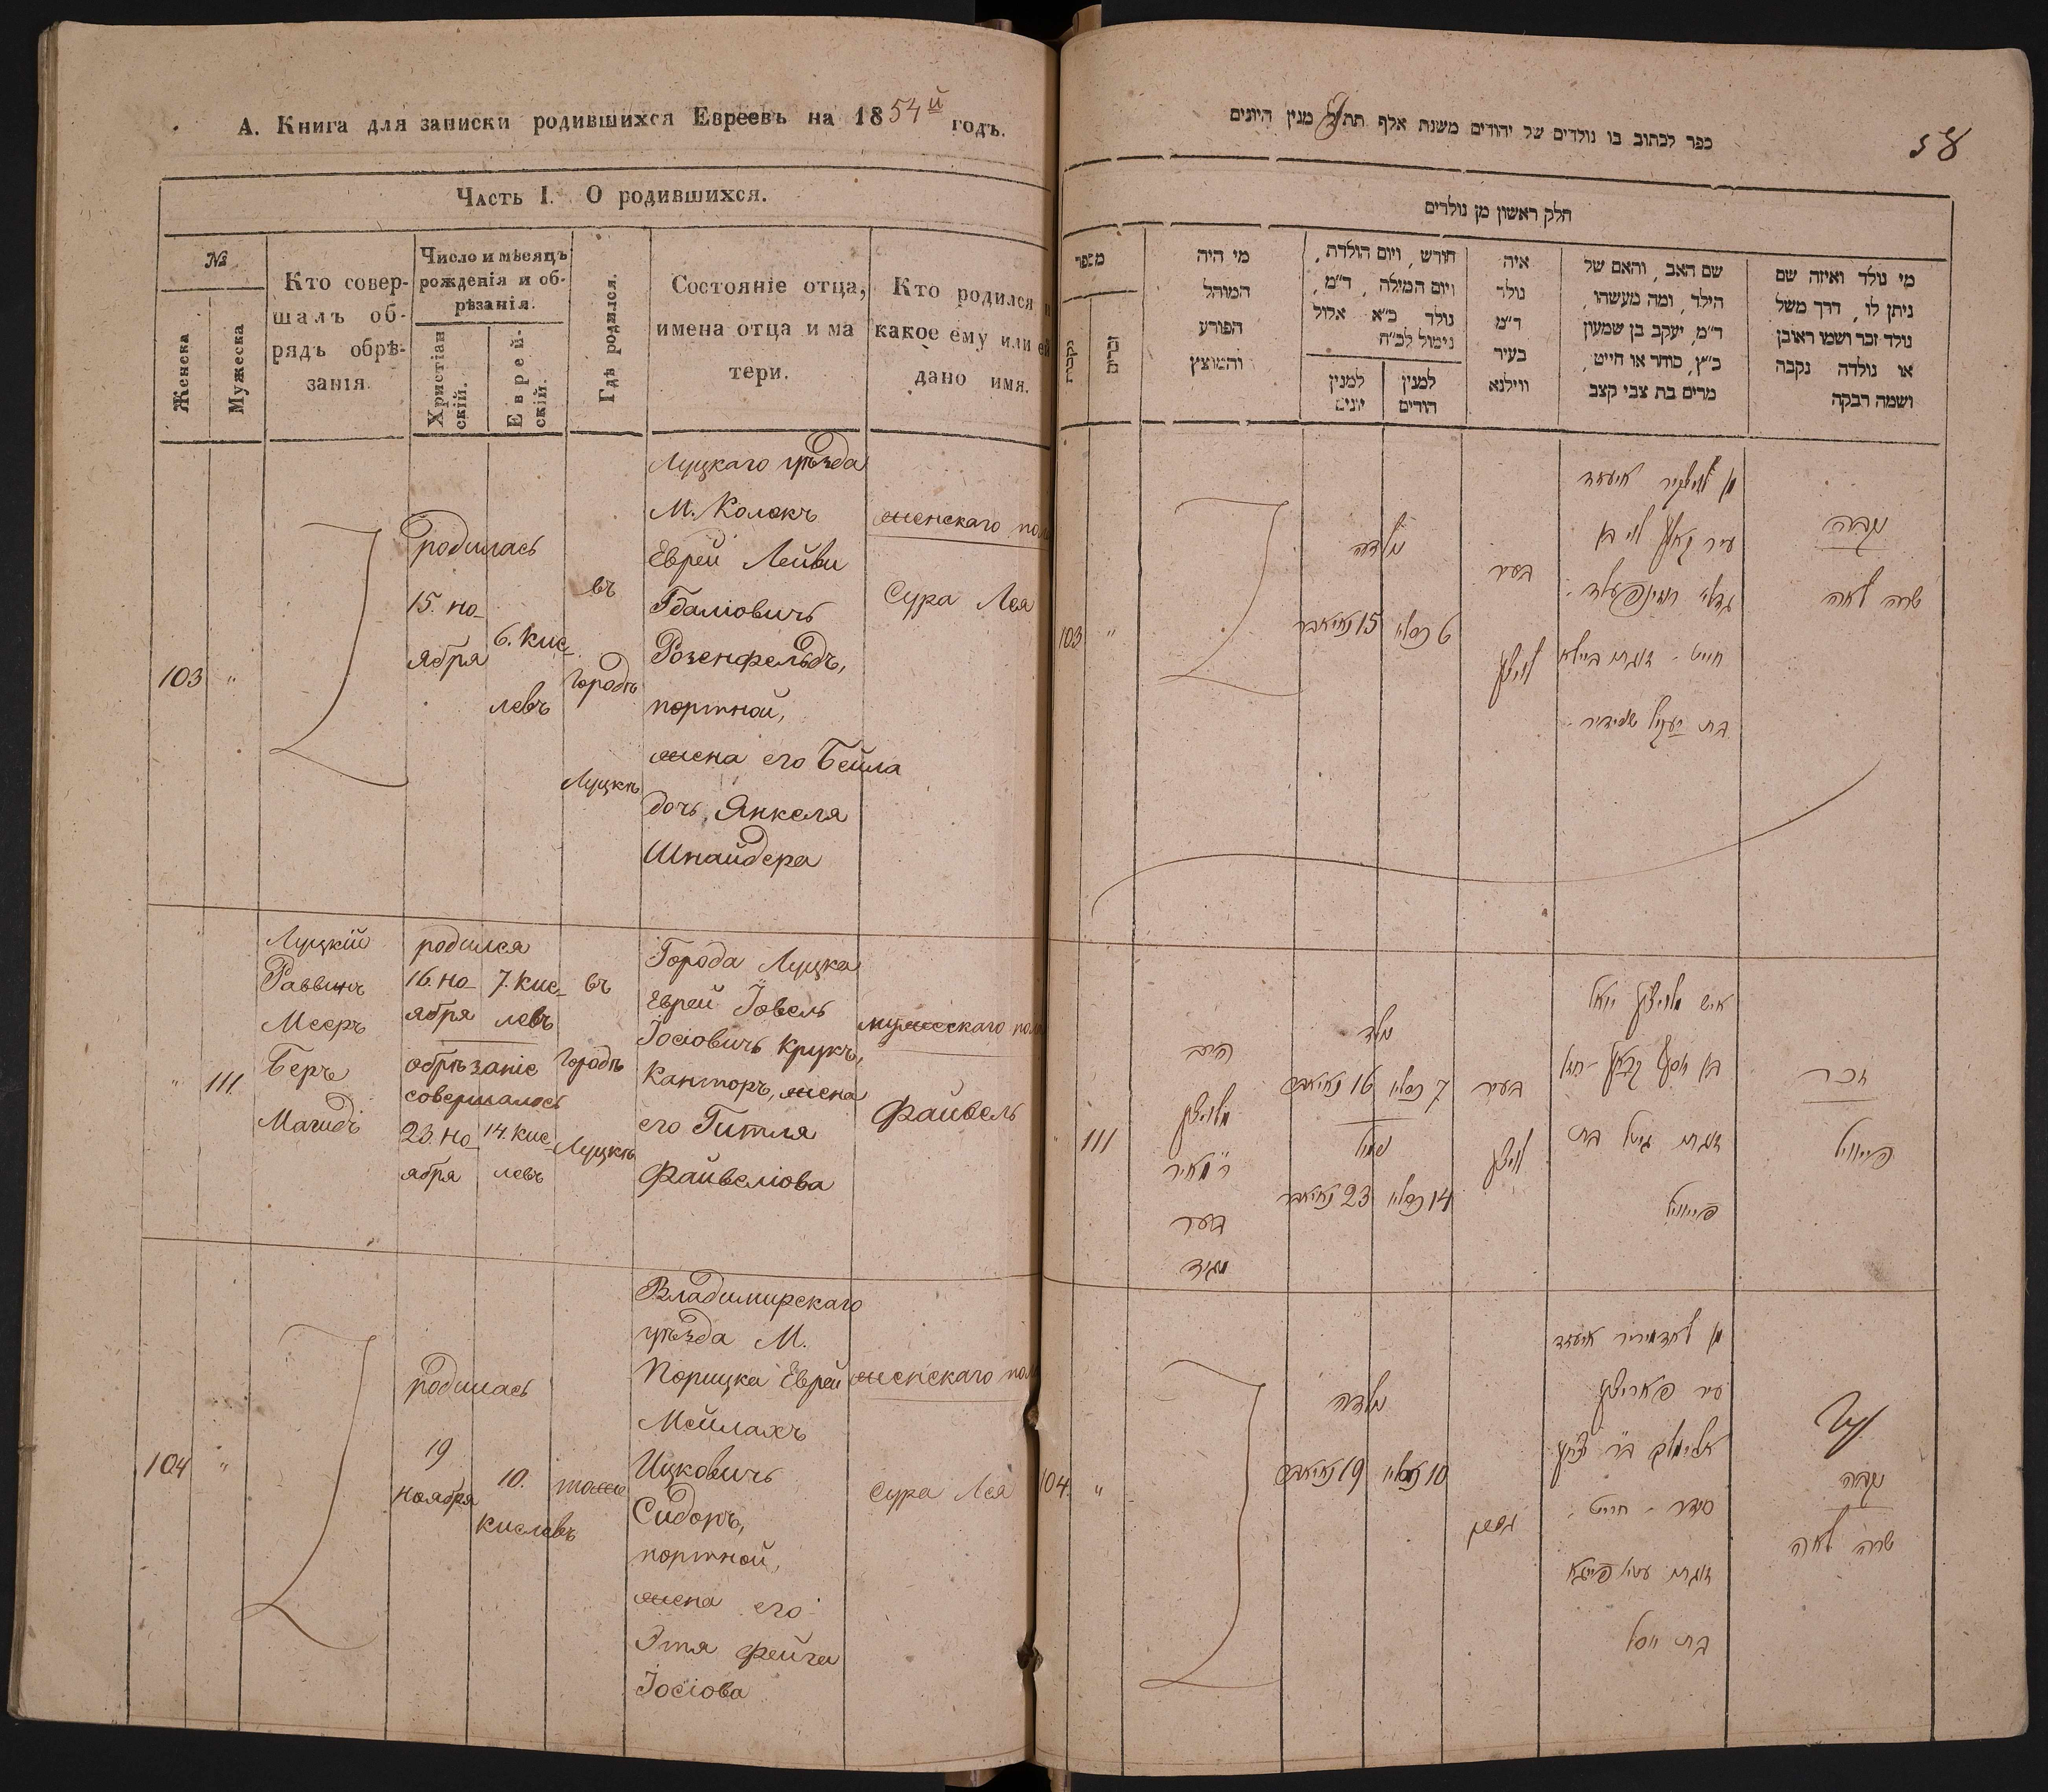 А. Книга для записки родившихся Евреевъ на 1854й годъ.
Часть I. О родившихся.
№
Женска
Мужеска
Кто совер-
шалъ об-
рядъ обрѣ-
занія.
Число и мѣсяцъ
рожденія и об-
рѣзанія.
Христіан
скій.
Еврей-
скій.
Гдѣ родился.
Состояніе отца,
имена отца и ма
тери.
Кто родился и
какое ему или ей
дано имя.
103
"
родилась
15. но-
ября
6. кис-
левъ
въ
городѣ
Луцкѣ
Луцкаго уѣзда
М. Колокъ
Еврей Лейви
Гдаліовичъ
Розенфельдъ,
портной,
жена его Бейла
дочь Янкеля
Шнайдера
женскаго пола
Сура Лея
"
111.
Луцкій
Раввинъ
Мееръ
Беръ
Магидъ
родился
16. но-
ября
7. кис-
левъ
обрѣзаніе
совершалось
23. но-
ября
14. кис-
левъ
въ
городѣ
Луцкѣ
Города Луцка
Еврей Іовель
Іосіовичъ Крукъ,
Канторъ, жена
его Гитля
Файвеліова
мужескаго пола
Файвель
104
"
родилась
19
ноября
10.
кислевъ
тоже
Владимирскаго
уѣзда М.
Порицка Еврей
Мейлахъ
Ицковичъ
Сидоръ,
портной,
жена его
Этя Фейга
Іосіова
женскаго пола
Сура Лея
ספר לכתוב בו נולדים של יהודים משנת אלף תת מנין היונים
חלק ראשון מן נולדים
מספר
נקבות
זכרים
מי היה
המוהל
הפורע
והמוצץ
חודש, ויום הולדת,
ויום המילה, ד"מ,
נולד כ"א אלול
נימול לכ"ח
למנין
יונים
למנין
הודים
איה
נולד
ד"מ
בעיר
ווילנא
שם האב, והאם של
הילד, ומה מעשהו,
ד"מ, יעקב בן שמעון
כ"ץ, סוחר או חייט,
מרים בת צבי קצב
מי נולד ואיזה שם
ניתן לו, דרך משל
נולד זכר ושמו ראובן
או נולדה נקבה
ושמה רבקה
103
"
נולדה
15 נאיאבר
6 כסליו
בעיר
לויצק
עיר קאלק לוי בן
גדלי' רוזינפעלד
חייט - זוגתו ביילא
בת יענקיל שניידיר
נקבה
שרה לאה
"
111
הרב
מלויצק
ר' מאיר
בער
מגיד
נולד
16 נאיאבר
7 כסליו
נימול
23 נאיאבר
14 כסליו
בעיר
לויצק
איש מלויצק יואל
בן יוסף קרוק - חזן
זוגתו גיטל בת
פייוויל
זכר
פייוויל
104.
"
נולדה
19 נאיאבר
10 כסליו
עיר פאריצק
אלימלך ב"ר יצחק
סידר - חייט
זוגתו עטיא פייגא
בת יוסל
נקבה
שרה לאה